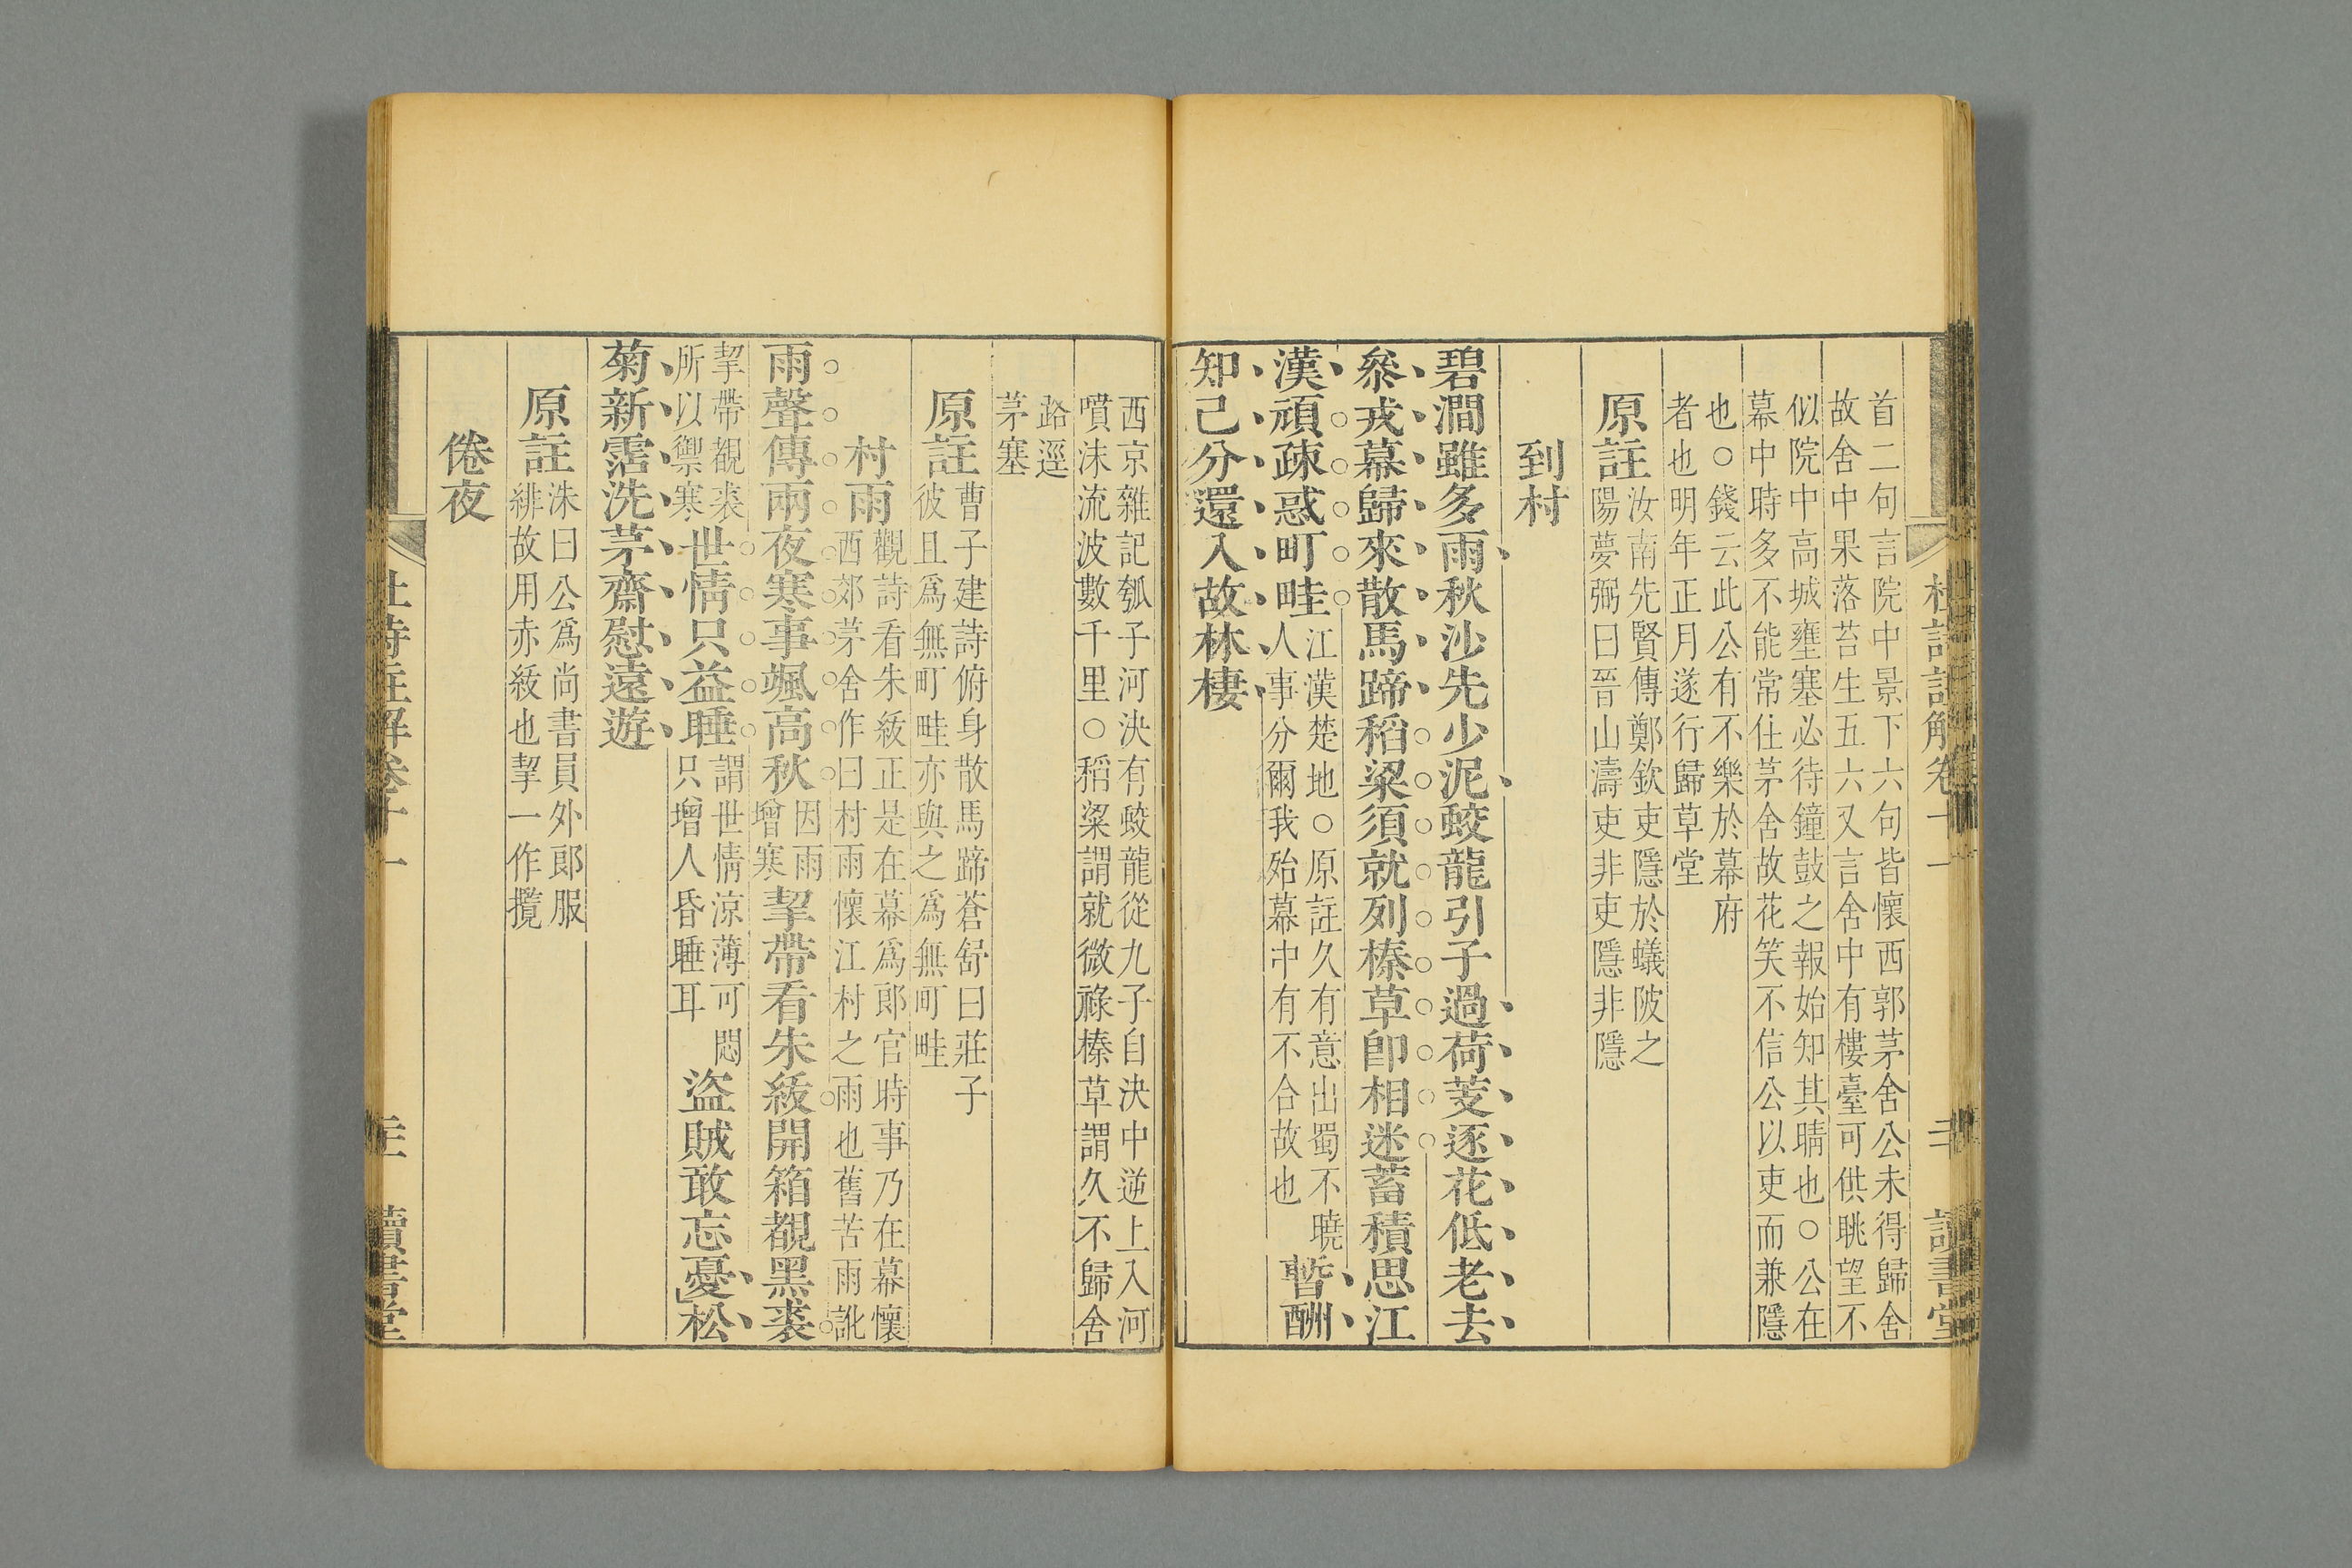 杜詩註解卷十一
二十
讀書堂
首二句言院中景下六句皆懷西郭茅舍公未得歸舍
故舍中果落苔生五六又言舍中有樓臺可供眺望不
似院中高城壅塞必待鐘鼓之報始知其晴也○公在
幕中時多不能常住茅舍故花笑不信公以吏而兼隱
也○錢云此公有不樂於幕府
者也明年正月遂行歸草堂
原註
汝南先賢傳鄭欽吏隱於蟻陂之
陽夢弼曰晉山濤吏非吏隱非隱
到村
碧澗雖多雨秋沙先少泥蛟龍引子過荷芰逐花低老去
叅戎幕歸來散馬蹄稻粱須就列榛草卽相迷蓄積思江
漢頑疎惑町畦
江漢楚地○原註久有意出蜀不曉
人事分爾我始幕中有不合故也
暫酬
知己分還入故林棲
西京雜記瓠子河決有蛟龍從九子自決中逆上入河
噴沫流波數千里○稻粱謂就微祿榛草謂久不歸舍
路逕
茅塞
原註
曹子建詩俯身散馬蹄蒼舒曰莊子
彼且爲無町畦亦與之爲無町畦
村雨
觀詩看朱紱正是在幕爲郞官時事乃在幕懷
西郊茅舍作曰村雨懷江村之雨也舊苦雨訛
雨聲傳兩夜寒事颯高秋
因雨
增寒
挈帶看朱紱開箱覩黑裘
挈帶覩裘
所以禦寒
世情只益睡
謂世情涼薄可悶
只增人昏睡耳
盜賊敢忘憂松
菊新霑洗茅齋慰遠遊
原註
洙曰公爲尚書員外郞服
緋故用赤紱也挈一作攬
倦夜
杜詩註解卷十一
讀書堂